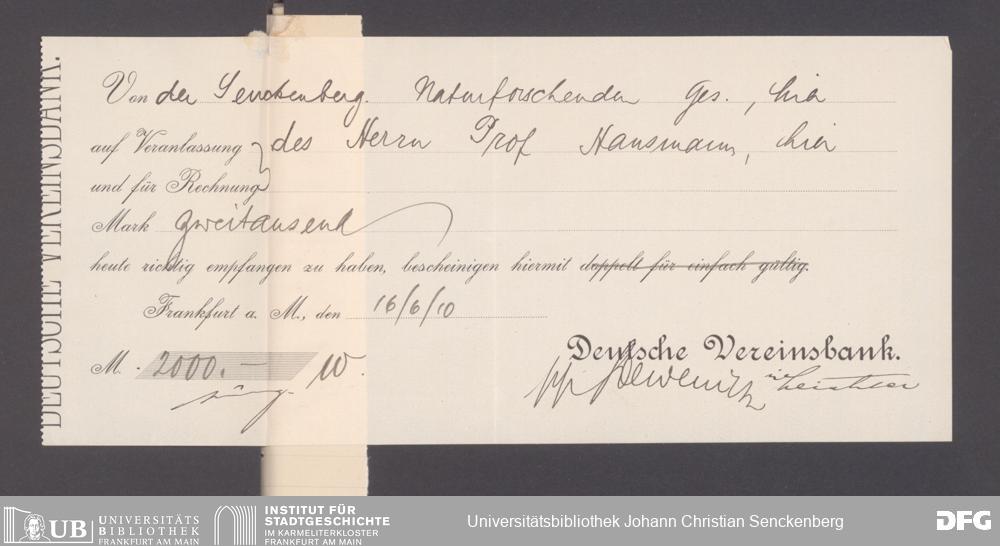 DEUTSCHE VEREINSBANK.
Von der Senckenberg. Naturforschenden Ges., hier
auf Veranlassung des Herrn Prof Hausmann, hier
und für Rechnung
Mark zweitausend
heute richtig empfangen zu haben, bescheinigen hiermit doppelt für einfach gültig.
Frankfurt a. M., den 16/6/10
Deutsche Vereinsbank.
M. 2000.—
UB UNIVERSITÄTS
BIBLIOTHEK
FRANKFURT AM MAIN
INSTITUT FÜR
STADTGESCHICHTE
IM KARMELITERKLOSTER
FRANKFURT AM MAIN
Universitätsbibliothek Johann Christian Senckenberg
DFG